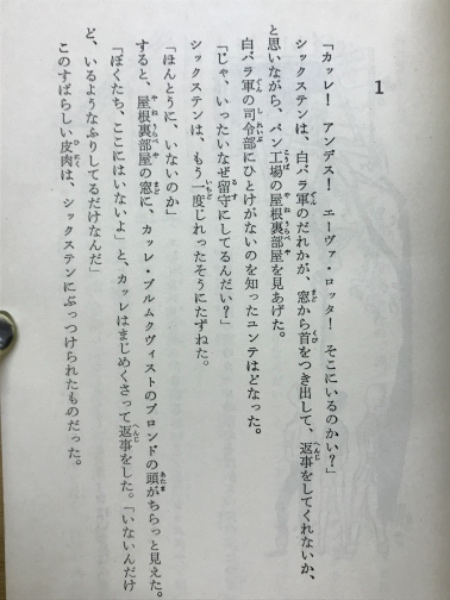 1
「カッレ！ アンデス！ エーヴァ・ロッタ！ そこにいるのかい？」
シックステンは、白バラ軍のだれかが、窓から首をつき出して、返事をしてくれないか、
と思いながら、パン工場の屋根裏部屋を見あげた。
白バラ軍の司令部にひとけがないのを知ったユンテはどなった。
「じゃ、いったいなぜ留守にしてるんだい？」
シックステンは、もう一度じれったそうにたずねた。
「ほんとうに、いないのか」
すると、屋根裏部屋の窓に、カッレ・ブルムクヴィストのブロンドの頭がちらっと見えた。
「ぼくたち、ここにはいないよ」と、カッレはまじめくさって返事をした。「いないんだけ
ど、いるようなふりしてるだけなんだ」
このすばらしい皮肉は、シックステンにぶっつけられたものだった。